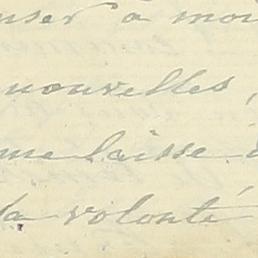 nser à mon
nouvelles,
me laisse à
la volonté